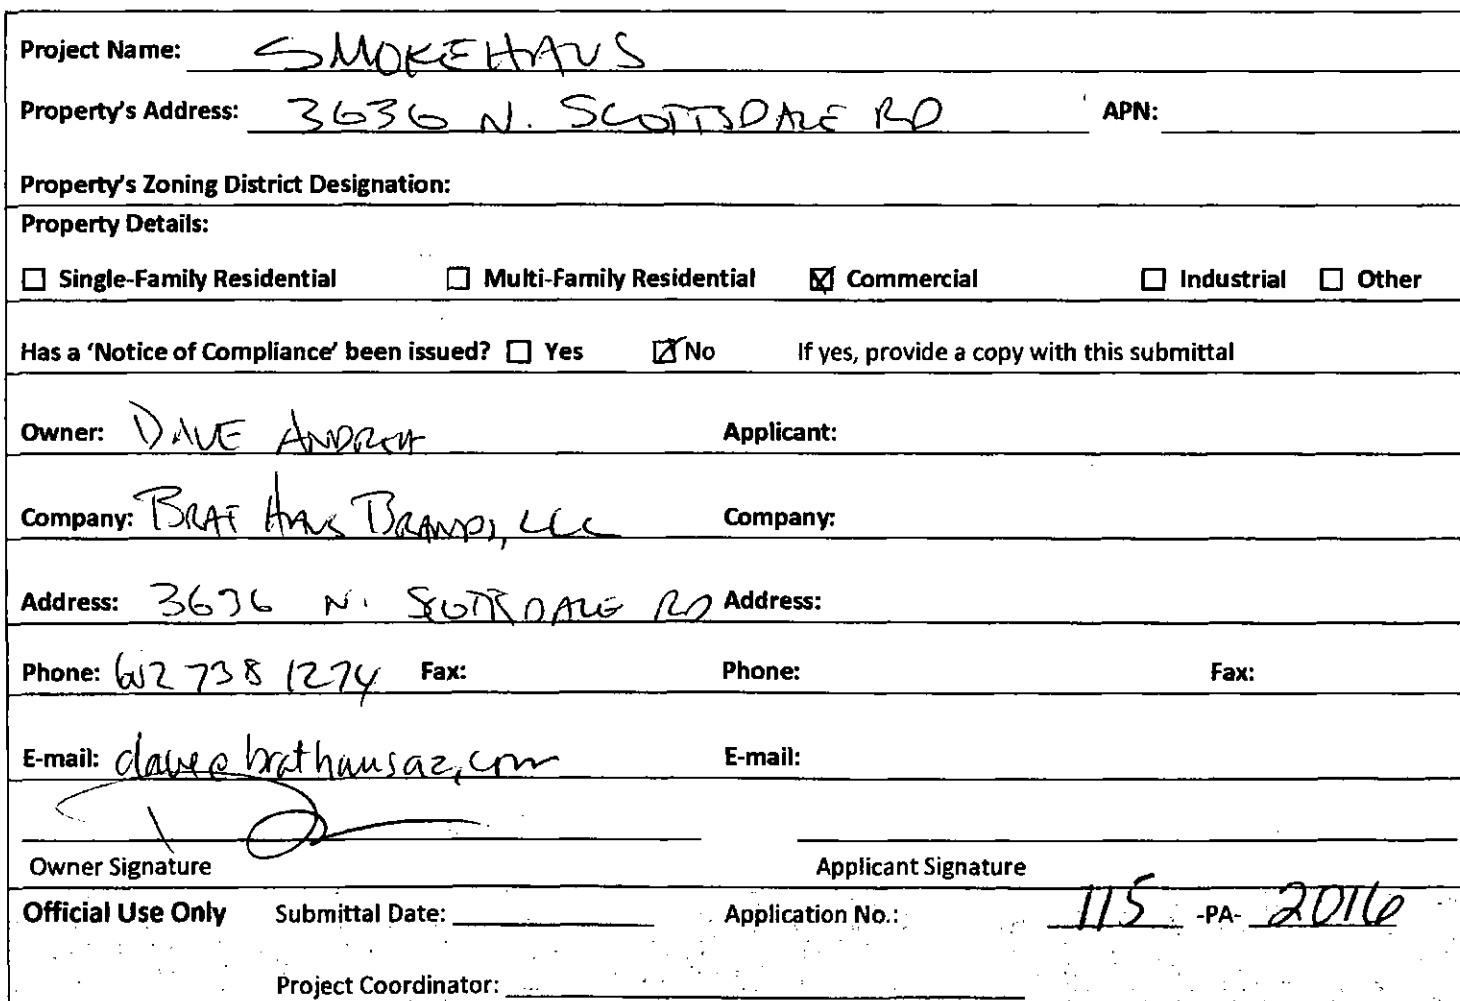 Project Name: SMOKEHAUS
Property's Address: 3636 N. SCOTTSDALE RD APN:
Property's Zoning District Designation:
Property Details:
☐ Single-Family Residential ☐ Multi-Family Residential ☒ Commercial ☐ Industrial ☐ Other
Has a 'Notice of Compliance' been issued? ☐ Yes ☒ No If yes, provide a copy with this submittal
Owner: DAVE ANDREA Applicant:
Company: BRAT HAUS BRANDS, LLC Company:
Address: 3636 N. SCOTTSDALE RD Address:
Phone: 602 738 1274 Fax: Phone: Fax:
E-mail: dave@brathausaz.com E-mail:
Owner Signature Applicant Signature
Official Use Only Submittal Date: Application No.: 115 -PA- 2016
Project Coordinator: